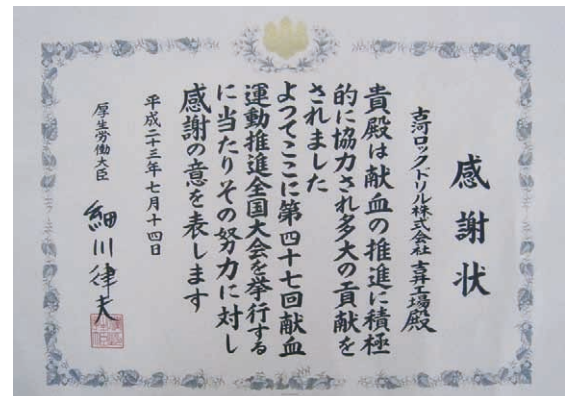 感謝状
古河ロックドリル株式会社 吉井工場殿
貴殿は献血の推進に積極
的に協力され多大の貢献を
されました
よつてここに第四十七回献血
運動推進全国大会を挙行する
に当たりその努力に対し
感謝の意を表します
平成二十三年七月十四日
厚生労働大臣 細川律夫